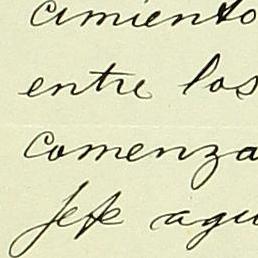 cimiento
entre los
comenza
Jefe agu